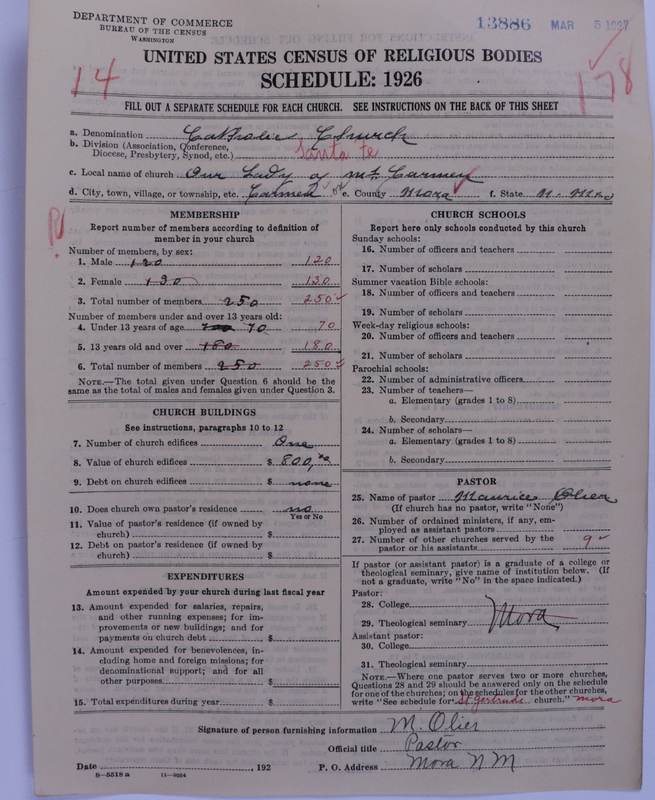 DEPARTMENT OF COMMERCE
BUREAU OF THE CENSUS
WASHINGTON
13886 MAR 5 1927
UNITED STATES CENSUS OF RELIGIOUS BODIES
SCHEDULE: 1926
14
178
FILL OUT A SEPARATE SCHEDULE FOR EACH CHURCH. SEE INSTRUCTIONS ON THE BACK OF THIS SHEET
a. Denomination Catholic Church
b. Division (Association, Conference,
Diocese, Presbytery, Synod, etc.) Santa Fe
c. Local name of church Our Lady of Mt. Carmel
d. City, town, village, or township, etc. Carmel e. County Mora f. State N. Mex
MEMBERSHIP
Report number of members according to definition of
member in your church
Number of members, by sex:
1. Male 120 120
2. Female 130 130
3. Total number of members 250 250
Number of members under and over 13 years old:
4. Under 13 years of age 70 70
5. 13 years old and over 180 180
6. Total number of members 250 250
NOTE.—The total given under Question 6 should be the
same as the total of males and females given under Question 3.
CHURCH BUILDINGS
See instructions, paragraphs 10 to 12
7. Number of church edifices One
8. Value of church edifices $ 800,
9. Debt on church edifices $ none
10. Does church own pastor's residence no
Yes or No
11. Value of pastor's residence (if owned by
church) $
12. Debt on pastor's residence (if owned by
church) $
EXPENDITURES
Amount expended by your church during last fiscal year
13. Amount expended for salaries, repairs,
and other running expenses; for im-
provements or new buildings; and for
payments on church debt $
14. Amount expended for benevolences, in-
cluding home and foreign missions; for
denominational support; and for all
other purposes $
15. Total expenditures during year $
CHURCH SCHOOLS
Report here only schools conducted by this church
Sunday schools:
16. Number of officers and teachers
17. Number of scholars
Summer vacation Bible schools:
18. Number of officers and teachers
19. Number of scholars
Week-day religious schools:
20. Number of officers and teachers
21. Number of scholars
Parochial schools:
22. Number of administrative officers
23. Number of teachers—
a. Elementary (grades 1 to 8)
b. Secondary
24. Number of scholars—
a. Elementary (grades 1 to 8)
b. Secondary
PASTOR
25. Name of pastor Maurice Olier
(If church has no pastor, write "None")
26. Number of ordained ministers, if any, em-
ployed as assistant pastors
27. Number of other churches served by the
pastor or his assistants 9
If pastor (or assistant pastor) is a graduate of a college or
theological seminary, give name of institution below. (If
not a graduate, write "No" in the space indicated.)
Pastor:
28. College
29. Theological seminary Mora
Assistant pastor:
30. College
31. Theological seminary
NOTE.—Where one pastor serves two or more churches,
Questions 28 and 29 should be answered only on the schedule
for one of the churches; on the schedules for the other churches,
write "See schedule for St. Gertrude church." Mora
Signature of person furnishing information M. Olier
Official title Pastor
Date , 192 P. O. Address Mora N M
8—5518a 11—9064